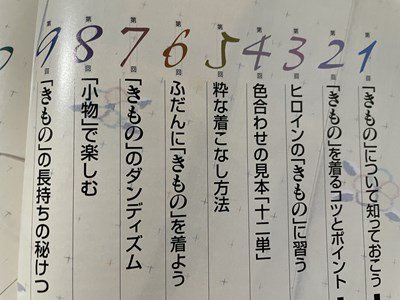 第1回 「きもの」について知っておこう
第2回 「きもの」を着るコツとポイント
第3回 ヒロインの「きもの」に習う
第4回 色合わせの見本「十二単」
第5回 粋な着こなし方法
第6回 ふだんに「きもの」を着よう
第7回 「きもの」のダンディズム
第8回 「小物」で楽しむ
第9回 「きもの」の長持ちの秘けつ